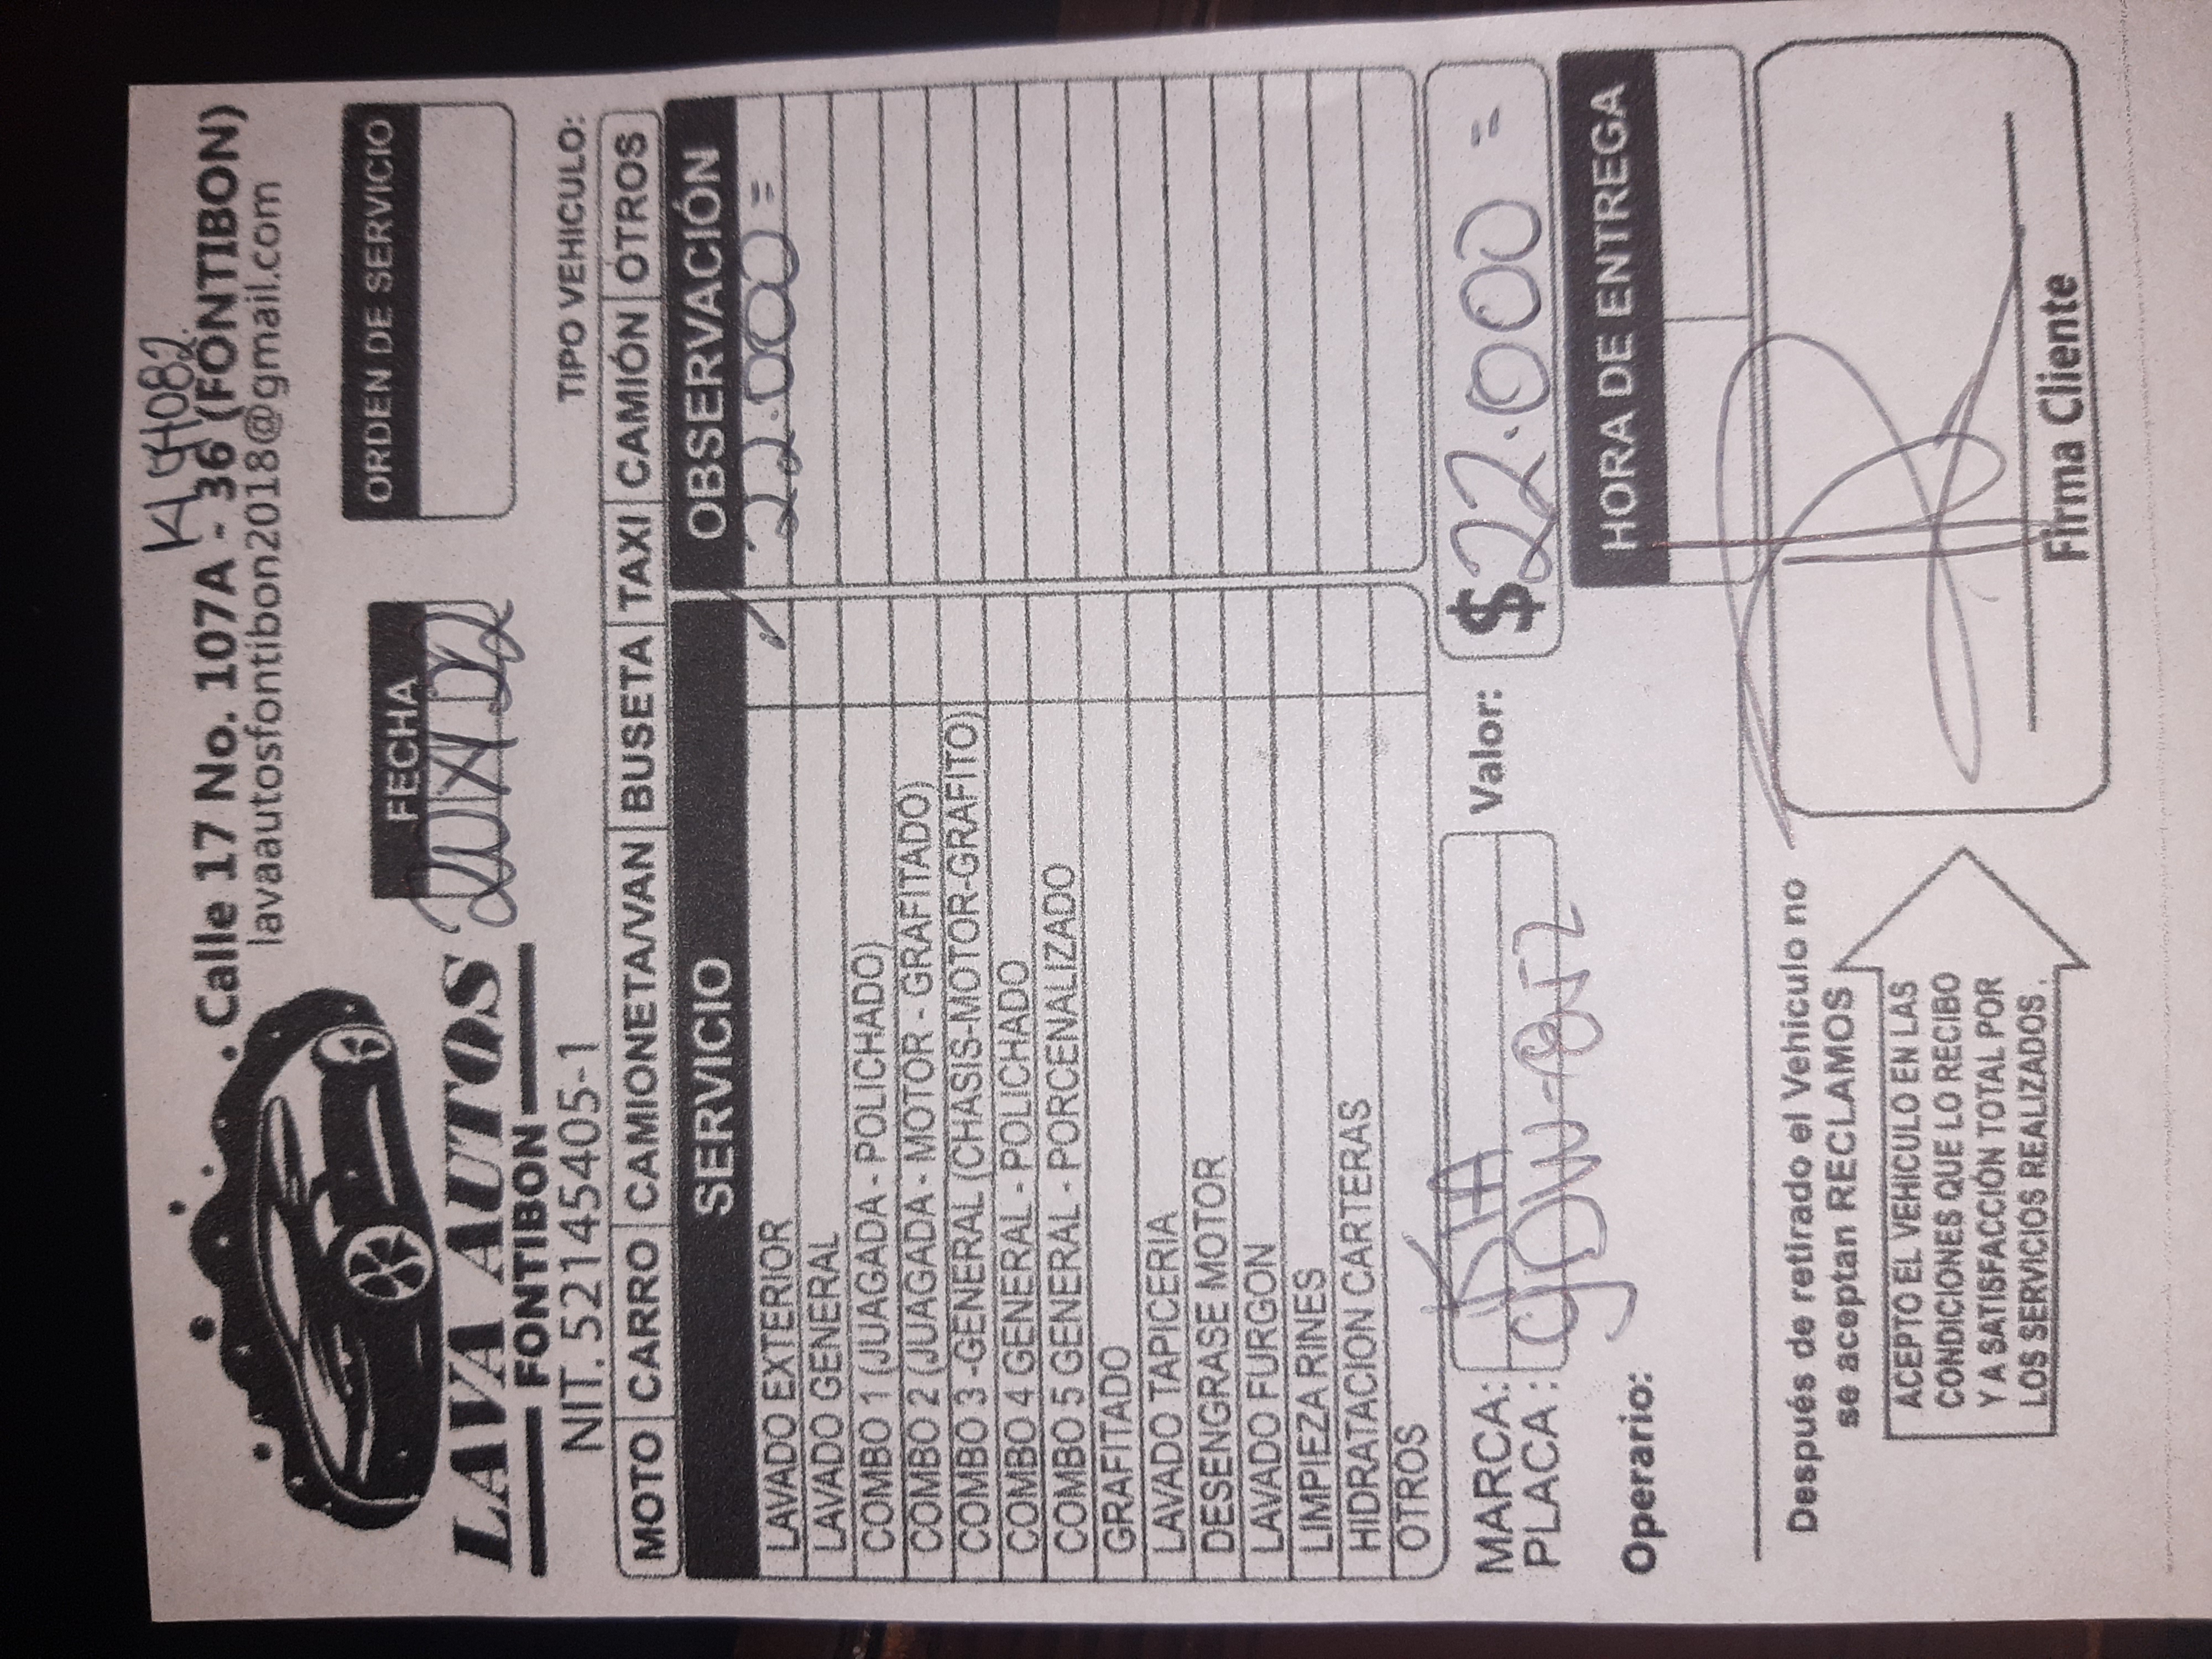 KLH082
Calle 17 No. 107A - 36 (FONTIBON)
lavaautosfontibon2018@gmail.com
LAVA AUTOS
FONTIBON
NIT. 52145405-1
FECHA
ORDEN DE SERVICIO
TIPO VEHICULO:
MOTO CARRO CAMIONETA/VAN BUSETA TAXI CAMIÓN OTROS
SERVICIO OBSERVACIÓN
LAVADO EXTERIOR 22.000=
LAVADO GENERAL
COMBO 1 (JUAGADA - POLICHADO)
COMBO 2 (JUAGADA - MOTOR - GRAFITADO)
COMBO 3 -GENERAL (CHASIS-MOTOR-GRAFITO)
COMBO 4 GENERAL - POLICHADO
COMBO 5 GENERAL - PORCENALIZADO
GRAFITADO
LAVADO TAPICERIA
DESENGRASE MOTOR
LAVADO FURGON
LIMPIEZA RINES
HIDRATACION CARTERAS
OTROS
MARCA: KIA
PLACA:
Valor: $22.000=
Operario:
HORA DE ENTREGA
Después de retirado el Vehiculo no
se aceptan RECLAMOS
ACEPTO EL VEHICULO EN LAS
CONDICIONES QUE LO RECIBO
Y A SATISFACCIÓN TOTAL POR
LOS SERVICIOS REALIZADOS.
Firma Cliente